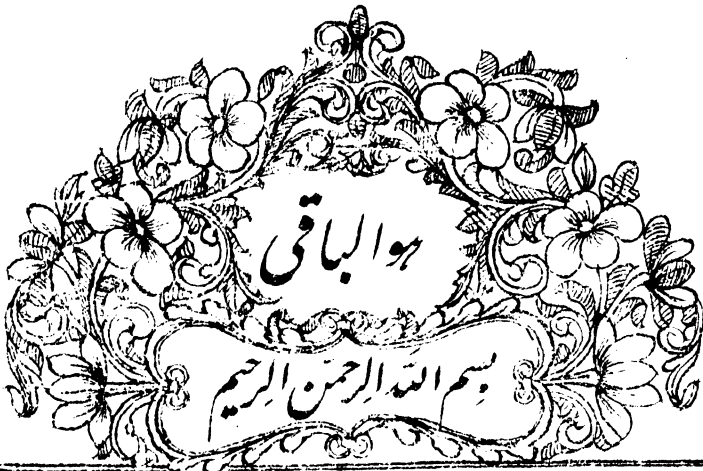 هوالباقی
بِسمِ اللّٰہ الرحمٰن الرحیم